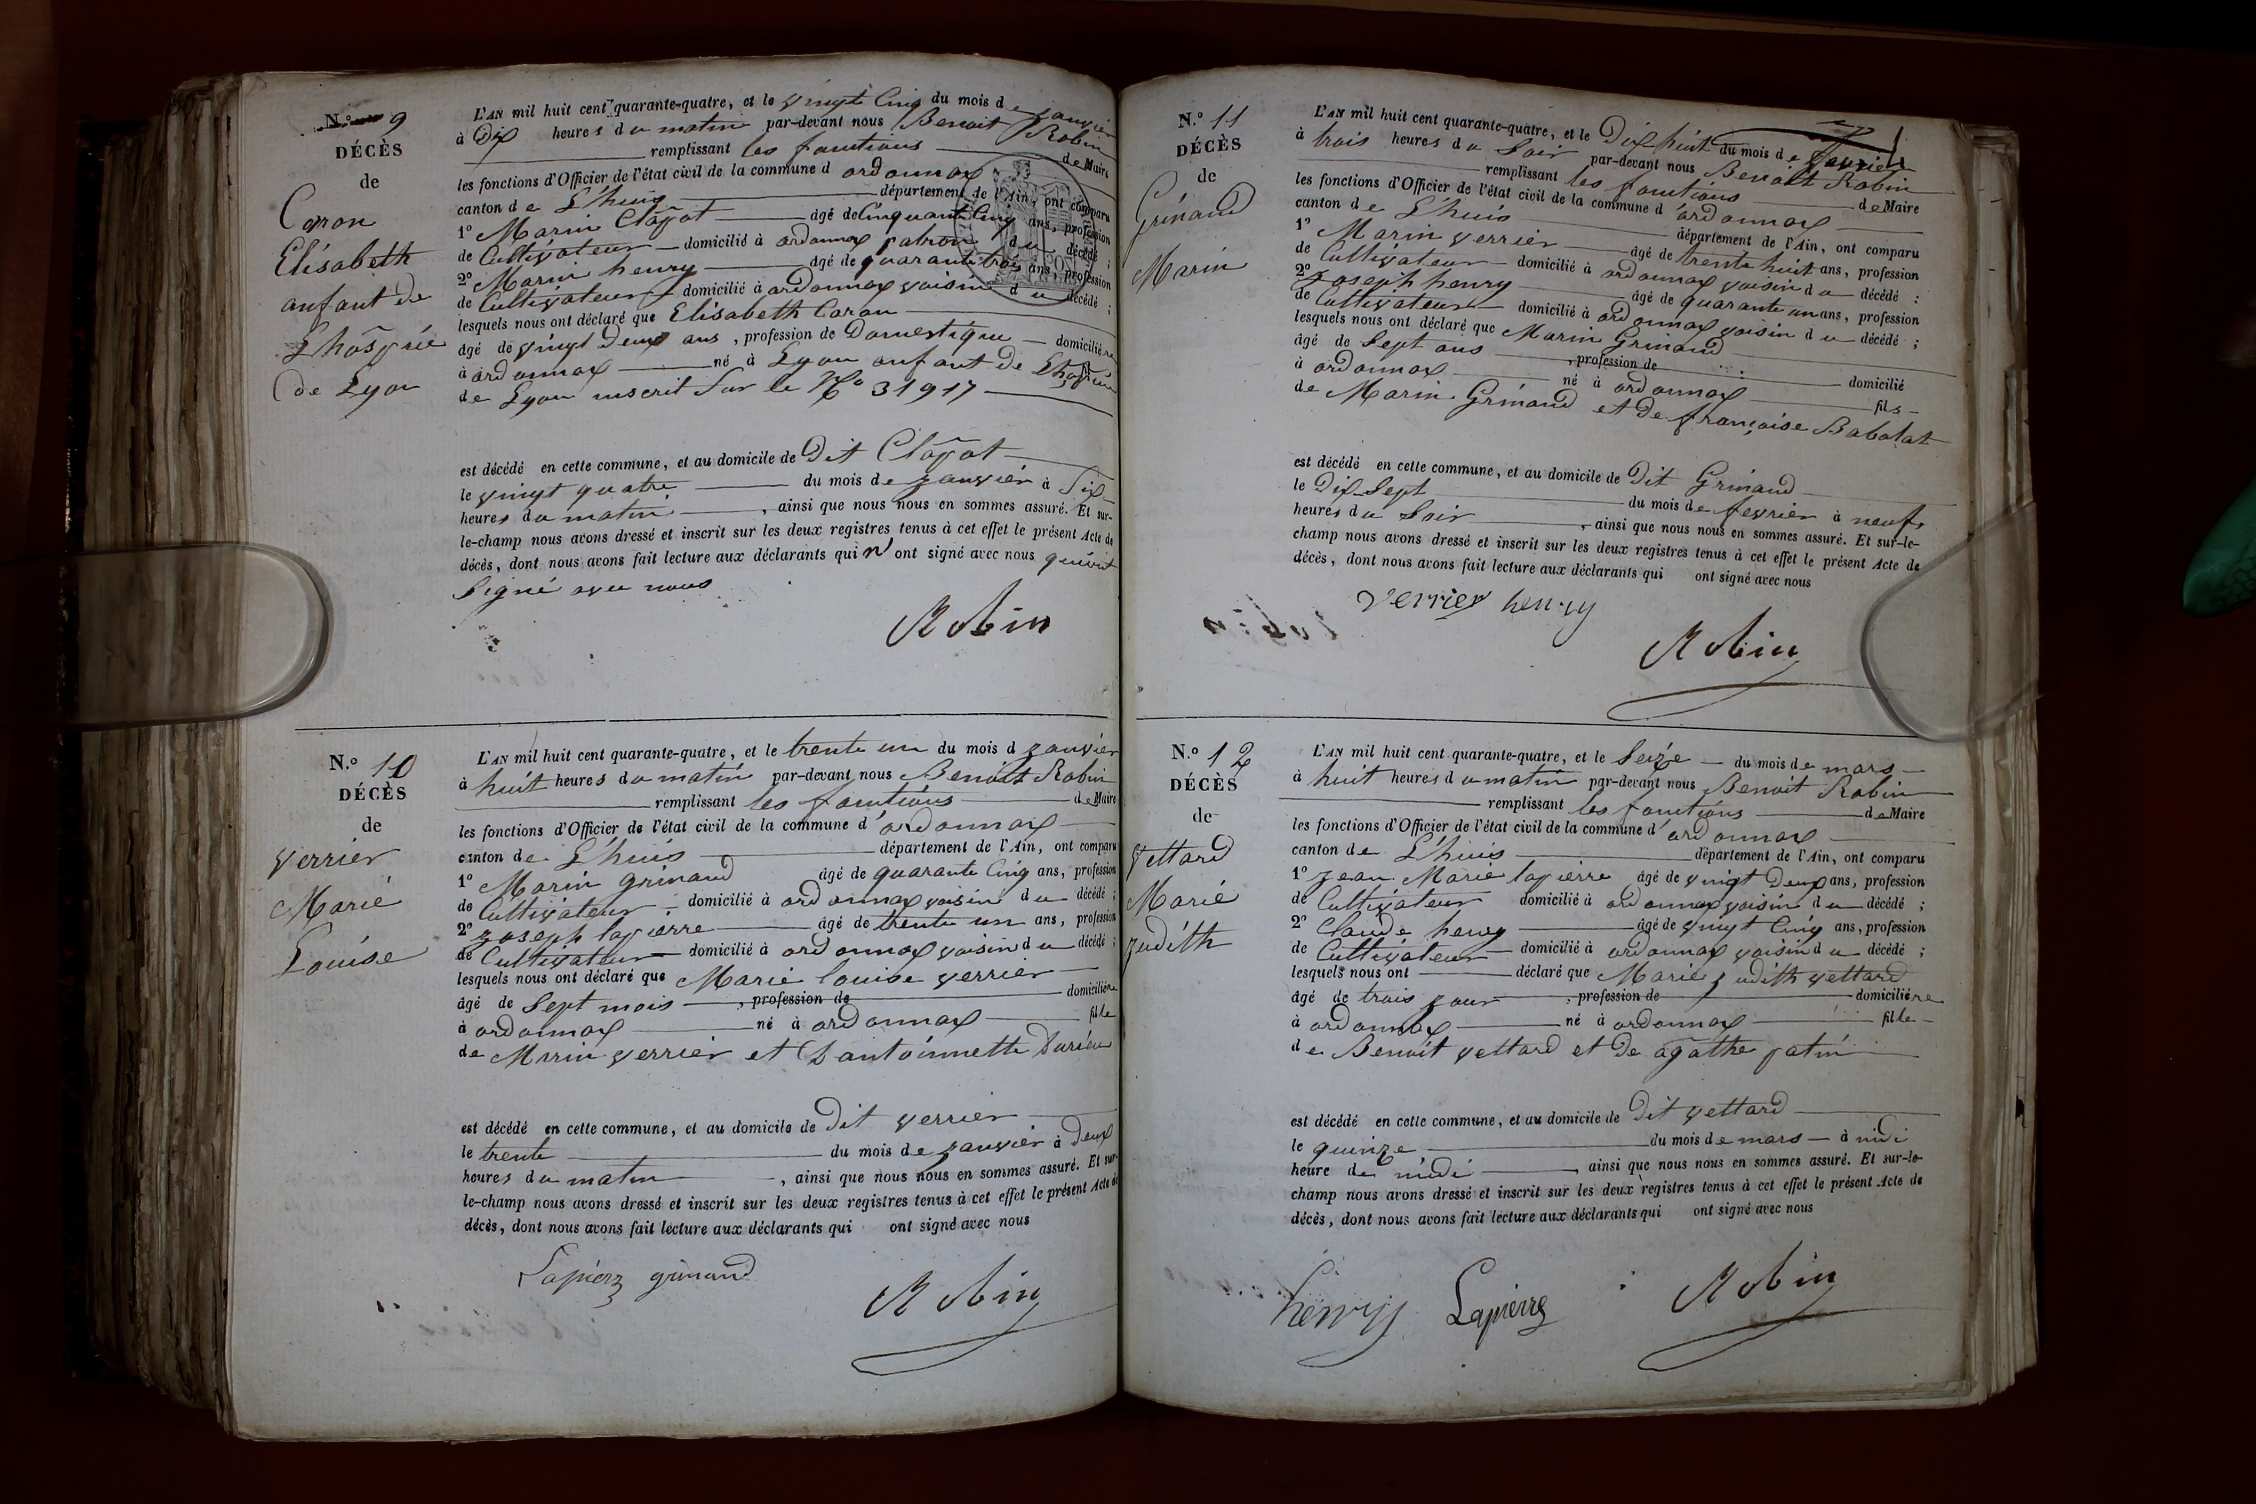 N.° 9
DÉCÈS
de
Caron
Elisabeth
anfant de
Lhôspié
de Lyon
L'AN mil huit cent quarante-quatre, et le vingte Cinq du mois de janvier
à Dix heures du matin par-devant nous Benoit Robin
remplissant les fonctions de Maire
les fonctions d'Officier de l'état civil de la commune d ordonnax
canton de L'huis département de l'Ain, ont comparu
1° Marin Clapot âgé de Cinquante Cinq ans, profession
de Cultivateur domicilié à ordonnax patron du décédé ;
2° Marin henry âgé de quarante trois ans, profession
de Cultivateur domicilié à ordonnax voisin du décédé ;
lesquels nous ont déclaré que Elisabeth Caron
âgé de vingt Deux ans, profession de Domestique domiciliére
à ordonnax né à Lyon anfant de
de Lyon inscrit Sur le N° 31917
est décédé en cette commune, et au domicile de Dit Clapot
le vingt quatre du mois de janvier à Six
heures du matin, ainsi que nous nous en sommes assuré. Et sur-
le-champ nous avons dressé et inscrit sur les deux registres tenus à cet effet le présent Acte de
décès, dont nous avons fait lecture aux déclarants qui n' ont signé avec nous
Signé avec nous
Robin
N.° 10
DÉCÈS
de
verrier
Marie
Louise
L'AN mil huit cent quarante-quatre, et le trente un du mois d janvier
à huit heures du matin par-devant nous Benoit Robin
remplissant les fonctions de Maire
les fonctions d'Officier de l'état civil de la commune d'ordonnax
canton de L'huis département de l'Ain, ont comparu
1° Marin grinand âgé de quarante Cinq ans, profession
de Cultivateur domicilié à ordonnax voisin du décédé ;
2° joseph lapierre âgé de trente un ans, profession
de Cultivateur domicilié à ordonnax voisin du décédé ;
lesquels nous ont déclaré que Marie louise verrier
âgé de Sept mois, profession de domiciliére
à ordonnax né à ordonnax fille
de Marin verrier et D'antoinnette
est décédé en cette commune, et au domicile de Dit verrier
le trente du mois de janvier à Deux
heures du matin, ainsi que nous nous en sommes assuré. Et sur-
le-champ nous avons dressé et inscrit sur les deux registres tenus à cet effet le présent Acte de
décès, dont nous avons fait lecture aux déclarants qui ont signé avec nous
Lapierre grinand
Robin
N.° 11
DÉCÈS
de
Grinand
Marin
L'AN mil huit cent quarante-quatre, et le Dix huit du mois de fevrier
à trois heures du Soir par-devant nous Benoit Robin
remplissant les fonctions de Maire
les fonctions d'Officier de l'état civil de la commune d'ordonnax
canton de L'huis département de l'Ain, ont comparu
1° Marin verrier âgé de trente huit ans, profession
de Cultivateur domicilié à ordonnax voisin du décédé ;
2° joseph henry âgé de quarante un ans, profession
de Cultivateur domicilié à ordonnax voisin du décédé ;
lesquels nous ont déclaré que Marin Grinand
âgé de Sept ans, profession de domicilié
à ordonnax né à ordonnax fils
de Marin Grinand et De françoise Babolat
est décédé en cette commune, et au domicile de Dit Grinand
le Dix Sept du mois de fevrier à neuf
heures du Soir, ainsi que nous nous en sommes assuré. Et sur-le-
champ nous avons dressé et inscrit sur les deux registres tenus à cet effet le présent Acte de
décès, dont nous avons fait lecture aux déclarants qui ont signé avec nous
verrier henry
Robin
N.° 12
DÉCÈS
de
vettard
Marie
judith
L'AN mil huit cent quarante-quatre, et le Seize du mois de mars
à huit heures du matin par-devant nous Benoit Robin
remplissant les fonctions de Maire
les fonctions d'Officier de l'état civil de la commune d'ordonnax
canton de L'huis département de l'Ain, ont comparu
1° jean Marie lapierre âgé de vingt Deux ans, profession
de Cultivateur domicilié à ordonnax voisin du décédé ;
2° Claude henry âgé de vingt Cinq ans, profession
de Cultivateur domicilié à ordonnax voisin du décédé ;
lesquels nous ont déclaré que Marie judith vettard
âgé de trois jour, profession de domiciliére
à ordonnax né à ordonnax fille
de Benoit vettard et De agathe patin
est décédé en cette commune, et au domicile de Dit vettard
le quinze du mois de mars à midi
heure de midi, ainsi que nous nous en sommes assuré. Et sur-le-
champ nous avons dressé et inscrit sur les deux registres tenus à cet effet le présent Acte de
décès, dont nous avons fait lecture aux déclarants qui ont signé avec nous
henry Lapierre Robin